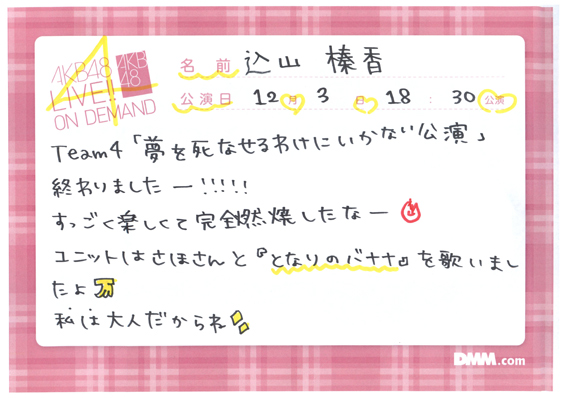 AKB48
LIVE!!
ON DEMAND
AKB
48
名前 込山 榛香
公演日 12月 3日 18:30公演
Team4「夢を死なせるわけにいかない公演」
終わりましたー!!!!!
すっごく楽しくて完全燃焼したなー
ユニットはさほさんと『となりのバナナ』を歌いまし
たよ
私は大人だからね
DMM.com